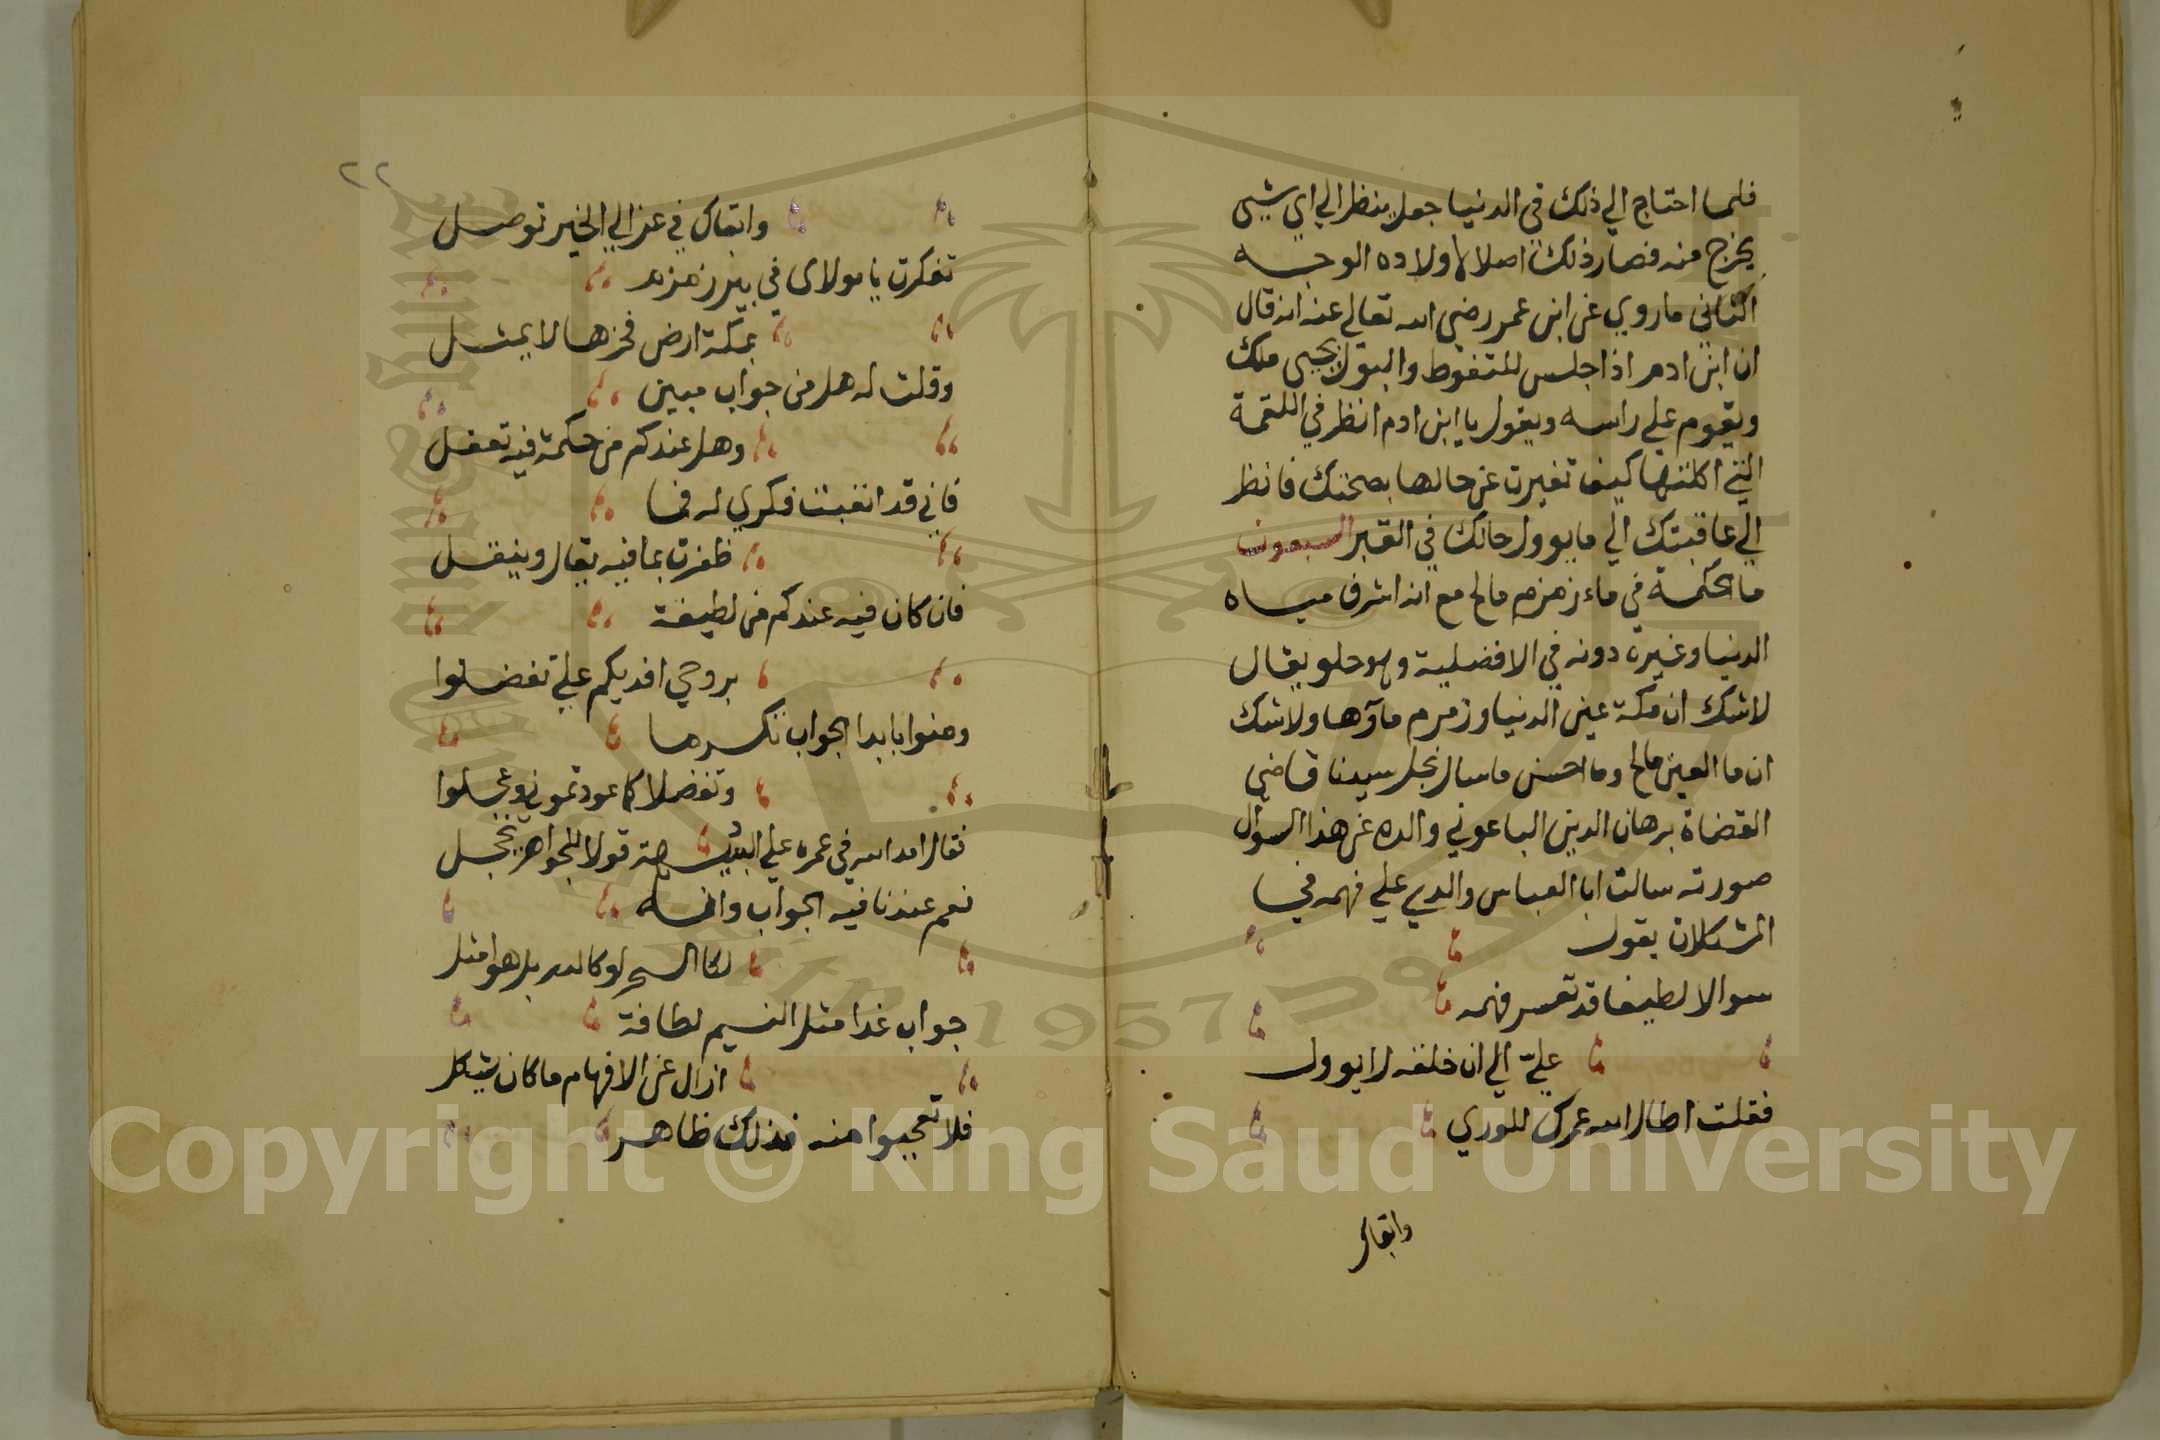 فلما احتاج الي ذلك في الدنيا جعل ينظر الي اي شيى
يخرج منه فصار ذلك اصلا لاولاده الوجه
الثاني ماروي عن ابن عمر رضي الله تعالي عنه انه قال
ان ابن ادم اذا جلس للتغوط والبول يجيى ملك
ويقوم علي راسه ويقول يا ابن ادم انظر في اللقمة
التي اكلتها كيف تغيرت عن حالها بصحبتك فانظر
الي عاقبتك الي مايوول حالك في القبر السبعون
ما الحكمة في ماء زمزم مالح مع انه اشرف مياه
الدنيا وغيره دونه في الافضلية وهو حلو يقال
لاشك ان مكة عين الدنيا وزمزم ماؤها ولاشك
ان ما العين مالح وما احسن ماسال نجل سيدنا قاضي
القضاة برهان الدين الباعوني والده عن هذا السؤال
صورته سالت ابا العباس والدي علي فهمه في
المشكلات يقول
سوالا لطيفا قد تعسر فهمه
علي الي ان خلته لا يوول
فقلت اطال الله عمرك للوري
وابقاك
٢٢
وابقاك في عز الي الخير توصل
تفكرت يا مولاى في بير زمزم
بمكة ارض فخرها لا يمثل
وقلت له هل من جواب مبين
وهل عندكم من حكمة فيه تعقل
فاني قد اتعبت فكري له فما
ظفرت بما فيه يقال وينقل
فان كان فيه عندكم من لطيفة
بروحي افديكم علي تفضلوا
ومنوا بابدا الجواب تكرما
وتفضلا كما عودتموني وعجلوا
فقال امد الله في عمره علي قولا للجواهر يخجل
نعم عندنا فيه الجواب وانه
لكا السحر او كالدر بل هو امثل
جواب غدا مثل النسيم لطافة
ازال عن الافهام ما كان يشكل
فلا تعجبوا منه فذلك ظاهر
Copyright © King Saud University
1957